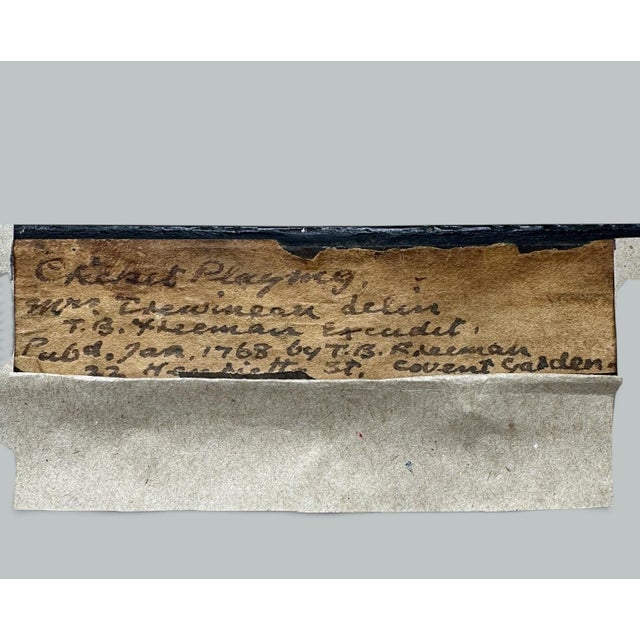 Cricket Playing,
Mrs. Trewinean delin
T.B. Freeman Excudit.
Pubd. Jan. 1768 by T.B. Freeman
22 Henrietta St. Covent Garden.